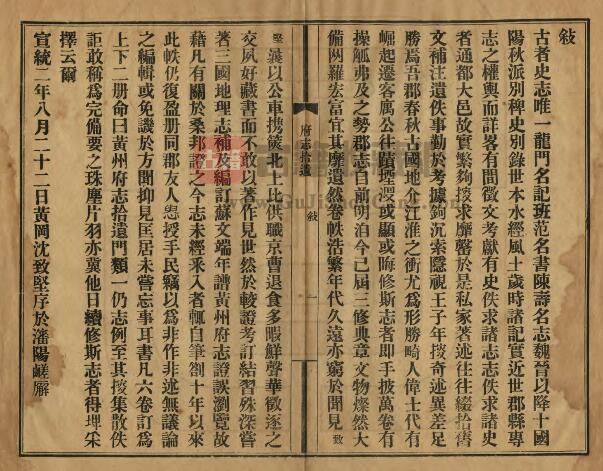 敍
古者史志唯一龍門名記班范名書陳壽名志魏晉以降十國
陽秋派別稗史別錄世本水經風土歲時諸記實近世郡縣專
志之權輿而詳畧有間徵文考獻有史佚求諸志志佚求諸史
者通都大邑故實繁夥捜求靡罄於是私家著述往往綴拾舊
文補注遺佚事勤於考據鉤沉索隱視王子年捜奇述異差足
勝焉吾郡春秋古國地入江淮之衝尤爲形勝畸人偉士代有
崛起遷客寓公往蹟或顯或晦修斯志者即手披萬卷有
操觚弗及之勢郡志自前明泊今已屆三修典章文物燦然大
備網羅宏富宜其靡遺然卷帙浩繁年代久遠亦窮於聞見致
堅曩以公車携篋北上比供職京曹退食多暇鮮聲華徵逐之
交夙好藏書而不敢以著作見世然於較證考訂結習殊深嘗
著三國地理志補及編訂蘇文端年譜黃州府志證誤瀏覽故
藉凡有關於桑邦證之今志未經釆入者輒自筆劄十年以來
此帙仍復盈册同郡友人慫授手民竊以爲非作非述無議論
之編輯或免譏於方聞抑見匡居未嘗忘事耳書凡六卷訂爲
上下二册命曰黃州府志拾遺門類一仍志例至其捜集散佚
詎敢稱爲完備要之珠塵片羽亦冀他日續修斯志者得埋釆
擇云爾
宣統二年八月二十二日黃岡沈致堅序於瀋陽嵯廨
府志拾遺
敍
一